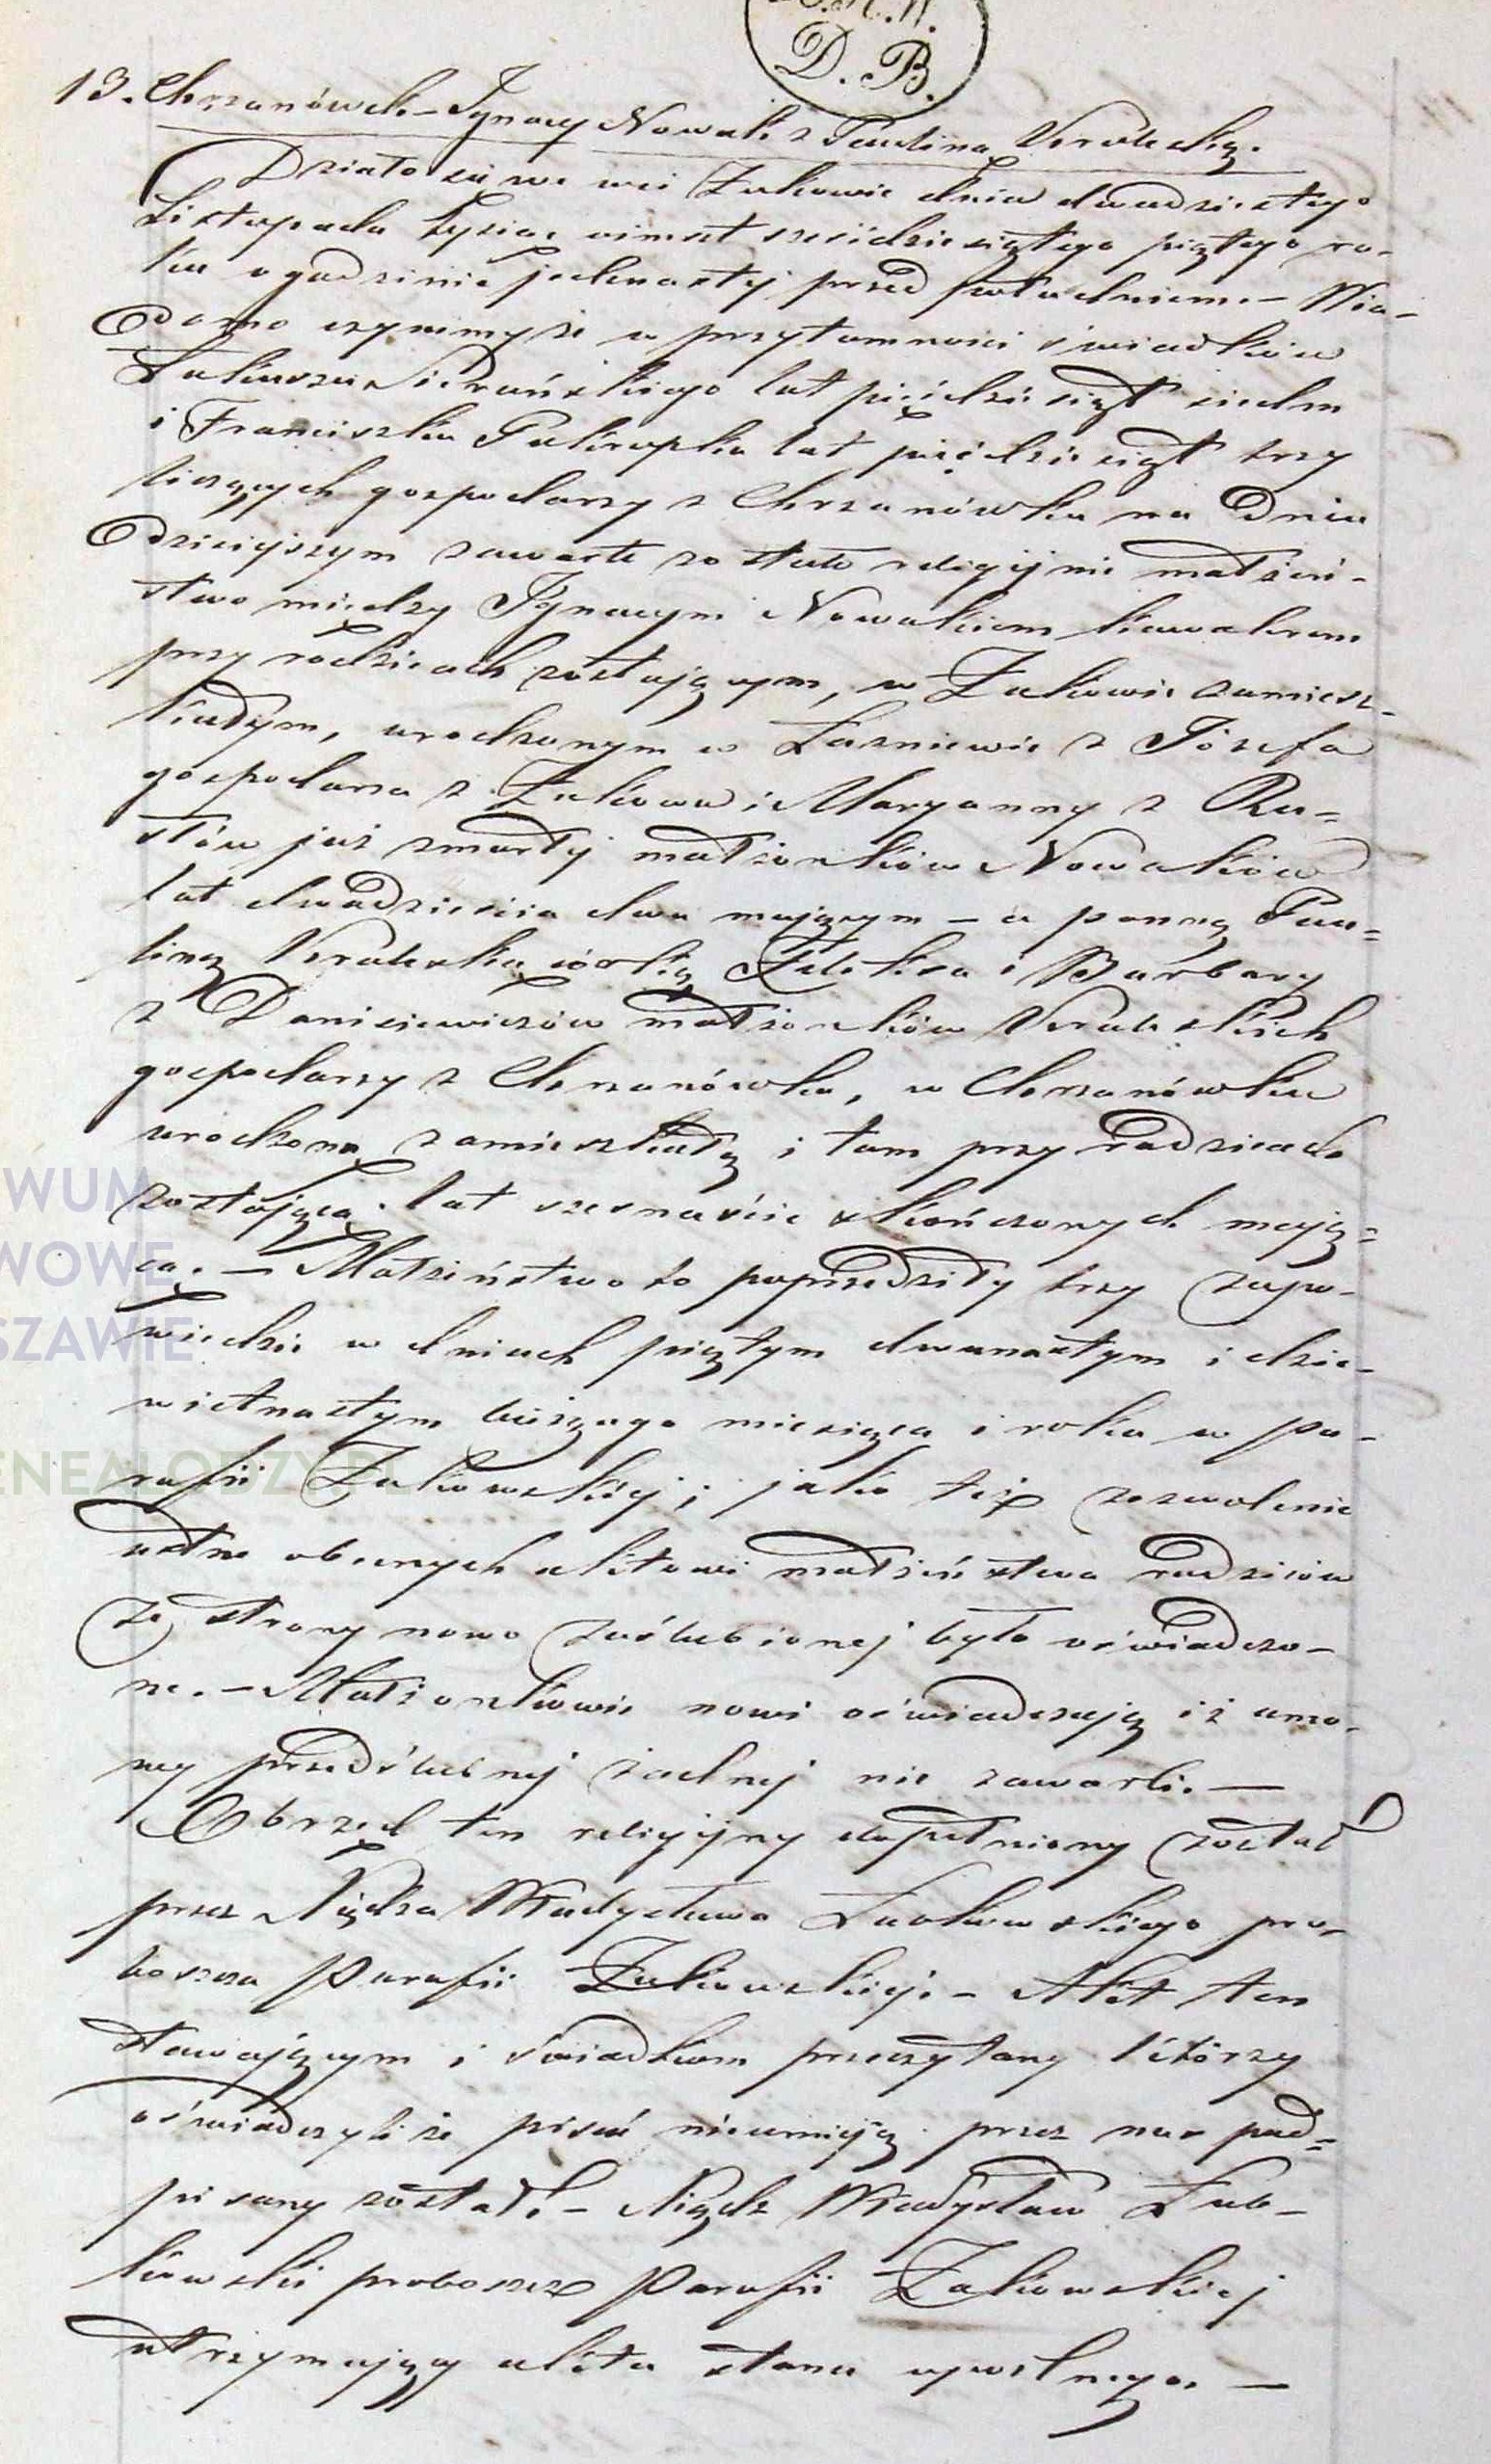 D. B.
13. Chrzanówek – Ignacy Nowak z Pauliną
Działo się we wsi Żukowie dnia dwudziestego
Listopada tysiąc ośmset sześćdziesiątego piątego ro-
ku o godzinie jedenastej przed południem. – Wia-
domo czynimy że w przytomności świadków
Łukasza lat pięćdziesiąt siedm
i Franciszka Pakropka lat pięćdziesiąt trzy
liczących gospodarzy z Chrzanówka na dniu
dzisiejszym zawarte zostało religijnie małżeń-
stwo między Ignacym Nowakiem kawalerem
przy rodzicach zostającym, w Żukowie zamiesz-
kałym, urodzonym w Łaźniewie z Józefa
gospodarza z Żukowa i Maryanny z Ru-
stów już zmarłej małżonków Nowaków
lat dwadzieścia dwa mającym – a panną Pau-
liną córką Feliksa i Barbary
z Danisiewiczów małżonków
gospodarzy z Chrzanówka, w Chrzanówku
urodzoną zamieszkałą i tam przy rodzicach
zostającą. lat szesnaście skończonych mają=
cą. – Małżeństwo to poprzedziły trzy zapo-
wiedzie w dniach piątym dwunastym i dzie-
więtnastym bieżącego miesiąca i roku w pa-
rafii Żukowskiej; jako też zezwolenie
ustne obecnych aktowi małżeństwa rodziców
ze strony nowo zaślubionej było oświadczo-
ne. – Małżonkowie nowi oświadczają iż umo-
wy przedślubnej żadnej nie zawarli. —
Obrzęd ten religijny dopełniony został
przez Xiędza Władysława Lubkowskiego pro-
boszcza Parafii Żukowskiej. – Akt ten
stawającym i świadkom przeczytany którzy
oświadczyli że pisać nieumieją. przez nas pod=
pisany został. – Xiądz Władysław Lub-
kowski proboszcz Parafii Żukowskiej
utrzymujący akta stanu cywilnego. —
WUM
WOWE
SZAWIE
ENEALODZY.PL